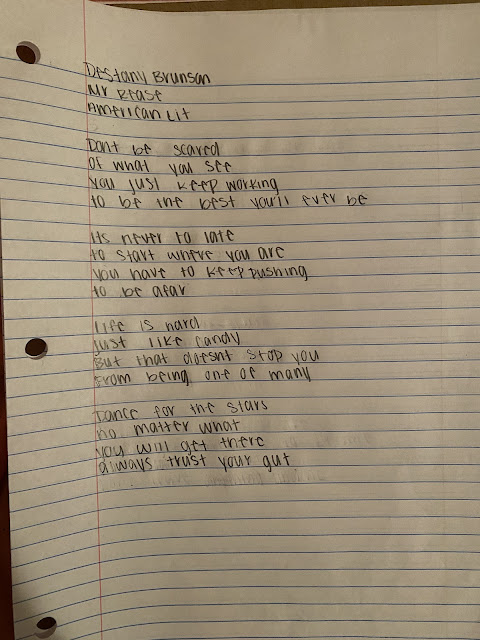 Destany Brunson
Mr Pease
American Lit
Dont be scared
Of what you see
You just keep working
to be the best you'll ever be
Its never to late
to start where you are
You have to keep pushing
to be afar
Life is hard
just like candy
But that doesnt stop you
from being one of many
Dance for the stars
no matter what
you will get there
always trust your gut